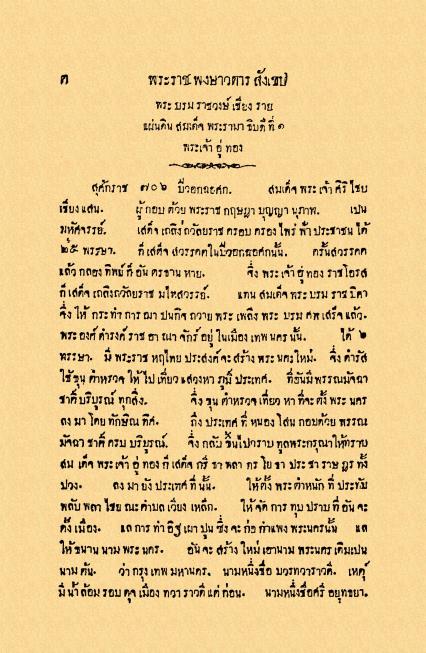 ๓ พระราช พงษาวดาร สังเขป
พระ บรม ราชวงษ์ เชียง ราย
แผ่นดิน สมเด็จ พระรามา ธิบดี ที่ ๑
พระเจ้า อู่ ทอง
สุศักราช ๗๐๖ ปีวอกฉอศก. สมเด็จ พระ เจ้า ศิริ ไชย
เชียง แสน. ผู้ กอบ ด้วย พระราช กฤษฎา บุญญา นุภาพ. เปน
มหัศจรรย์. เสด็จ เถลิงถวัลยราช ครอบ ครอง ไพร่ ฟ้า ประชาชน ได้
๒๕ พรรษา. ก็ เสด็จ สวรรคตในปีวอกฉอศกนั้น. ครั้นสวรรคต
แล้ว กลอง ทิพย์ ก็ อัน ตรธาน หาย. จึ่ง พระ เจ้า อู่ ทอง ราชโอรส
ก็ เสด็จ เถลิงถวัลยราช มไหสวรรย์. แทน สมเด็จ พระ บรม ราช บิดา
จึ่ง ให้ กระทำ การ ฌา ปนกิจ ถวาย พระ เพลิง พระ บรม ศพ เสร็จ แล้ว.
พระ องค์ ดำรงค์ ราช อา ณา จักร์ อยู่ ในเมือง เทพ นคร นั้น. ได้ ๖
พรรษา. มี พระราช หฤไทย ประสงค์ จะ สร้าง พระ นคร ใหม่. จึ่ง ดำรัส
ใช้ ขุน ตำหรวจ ให้ ไป เที่ยว แสวงหา ภูมิ์ ประเทศ. ที่อันมี พรรณมัจฉา
ชาติ บริบูรณ์ ทุกสิ่ง. จึ่ง ขุน ตำหรวจ เที่ยว หา ที่จะ ตั้ง พระ นคร
ลง มา โดย ทักษิณ ทิศ. ถึง ประเทศ ที่ หนอง โสน กอบด้วย พรรณ
มัจฉา ชาติ ครบ บริบูรณ์. จึ่ง กลับ ขึ้นไปกราบ ทูลพระกรุณาให้ทราบ
สม เด็จ พระเจ้า อู่ ทอง ก็ เสด็จ กรี ธา พลา กร โย ธา ประ ชา ราษฎร ทั้ง
ปวง. ลง มา ยัง ประเทศ ที่ นั้น. ให้ตั้ง พระ ตำหนัก ที่ ประทับ
พลับ พลา ไชย ณะ ตำบล เวียง เหล็ก. ให้ จัด การ ทุบ ปราบ ที่ อัน จะ
ตั้ง เมือง. แล การ ทำ อิฐ เผา ปูน ซึ่ง จะ ก่อ กำแพง พระนครนั้น แล
ให้ ขนาน นาม พระ นคร. อัน จะ สร้าง ใหม่ เอานาม พระนคร เดิมเปน
นาม ต้น. ว่า กรุง เทพ มหานคร. นามหนึ่งชื่อ บวรทวาราวดี. เหตุ์
มี น้ำ ล้อม รอบ ดุจ เมือง ทวา ราวดี แต่ ก่อน. นามหนึ่งชื่อศรี อยุทธยา.